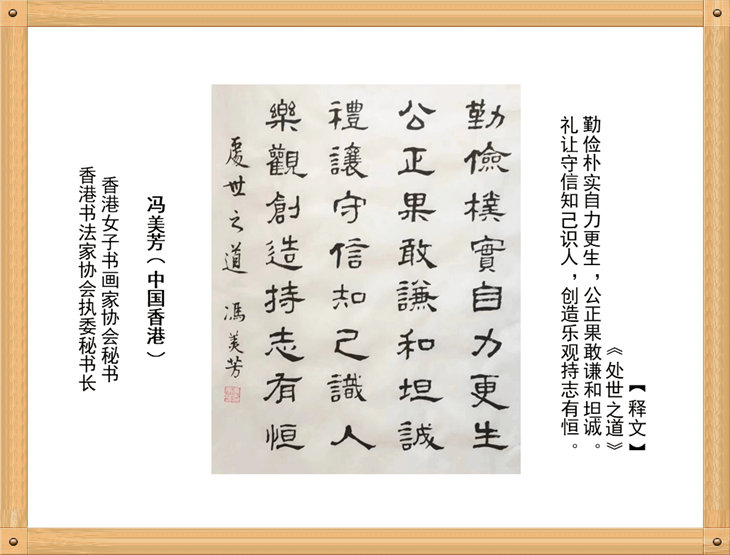 【释文】
《处世之道》
勤俭朴实自力更生，公正果敢谦和坦诚。
礼让守信知己识人，创造乐观持志有恒。
勤儉樸實自力更生
公正果敢謙和坦誠
禮讓守信知己識人
樂觀創造持志有恒
處世之道 馮美芳
冯美芳（中国香港）
香港女子书画家协会秘书
香港书法家协会执委秘书长